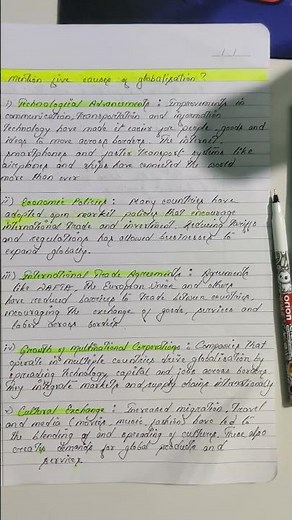 Mention five causes of globalisation?
i) Technological Advancements : Improvements in
communication, transportation and information
technology have made it easier for people, goods and
ideas to move across borders. The internet,
smartphones and faster transport systems like
airplanes and ships have connected the world
more than ever.
ii) Economic Policies : Many countries have
adopted open market policies that encourage
international trade and investment. Reducing tariffs
and regulations has allowed businesses to
expand globally.
iii) International Trade Agreements : Agreements
like NAFTA, the European Union and others
have reduced barriers to trade between countries,
encouraging the exchange of goods, services and
labor across borders.
iv) Growth of Multinational Corporations : Companies that
operate in multiple countries drive globalisation by
spreading technology, capital and jobs across borders.
They integrate markets and supply chains internationally
v) Cultural Exchange : Increased migration, travel
and media (movies, music, fashion) have led to
the blending of and spreading of cultures. These also
creates demands for global products and
services.